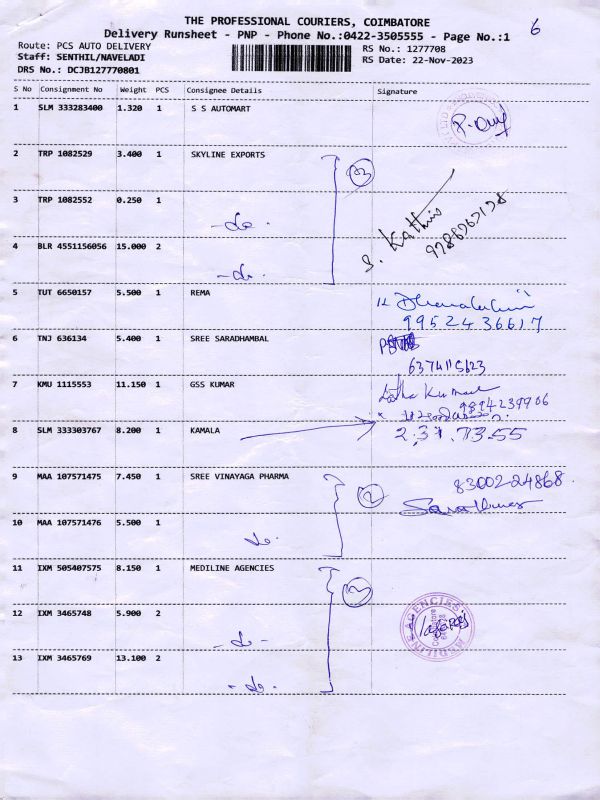 THE PROFESSIONAL COURIERS, COIMBATORE
6
Delivery Runsheet - PNP - Phone No.:0422-3505555 - Page No.:1
Route: PCS AUTO DELIVERY
RS No.: 1277708
Staff: SENTHIL/NAVELADI
RS Date: 22-Nov-2023
DRS No.: DCJB127770801
S No Consignment No Weight PCS Consignee Details Signature
1 SLM 333283400 1.320 1 S S AUTOMART
2 TRP 1082529 3.400 1 SKYLINE EXPORTS
3 TRP 1082552 0.250 1 -do-
4 BLR 4551156056 15.000 2 -do-
5 TUT 6650157 5.500 1 REMA
9952436617
6 TNJ 636134 5.400 1 SREE SARADHAMBAL
7 KMU 1115553 11.150 1 GSS KUMAR Latha Kumar
9894239906
8 SLM 333303767 8.200 1 KAMALA
9 MAA 107571475 7.450 1 SREE VINAYAGA PHARMA 8300224868
10 MAA 107571476 5.500 1 do.
2
11 IXM 505407575 8.150 1 MEDILINE AGENCIES
12 IXM 3465748 5.900 2 -do-
MEDILINE AGENCIES
13 IXM 3465769 13.100 2 -do.